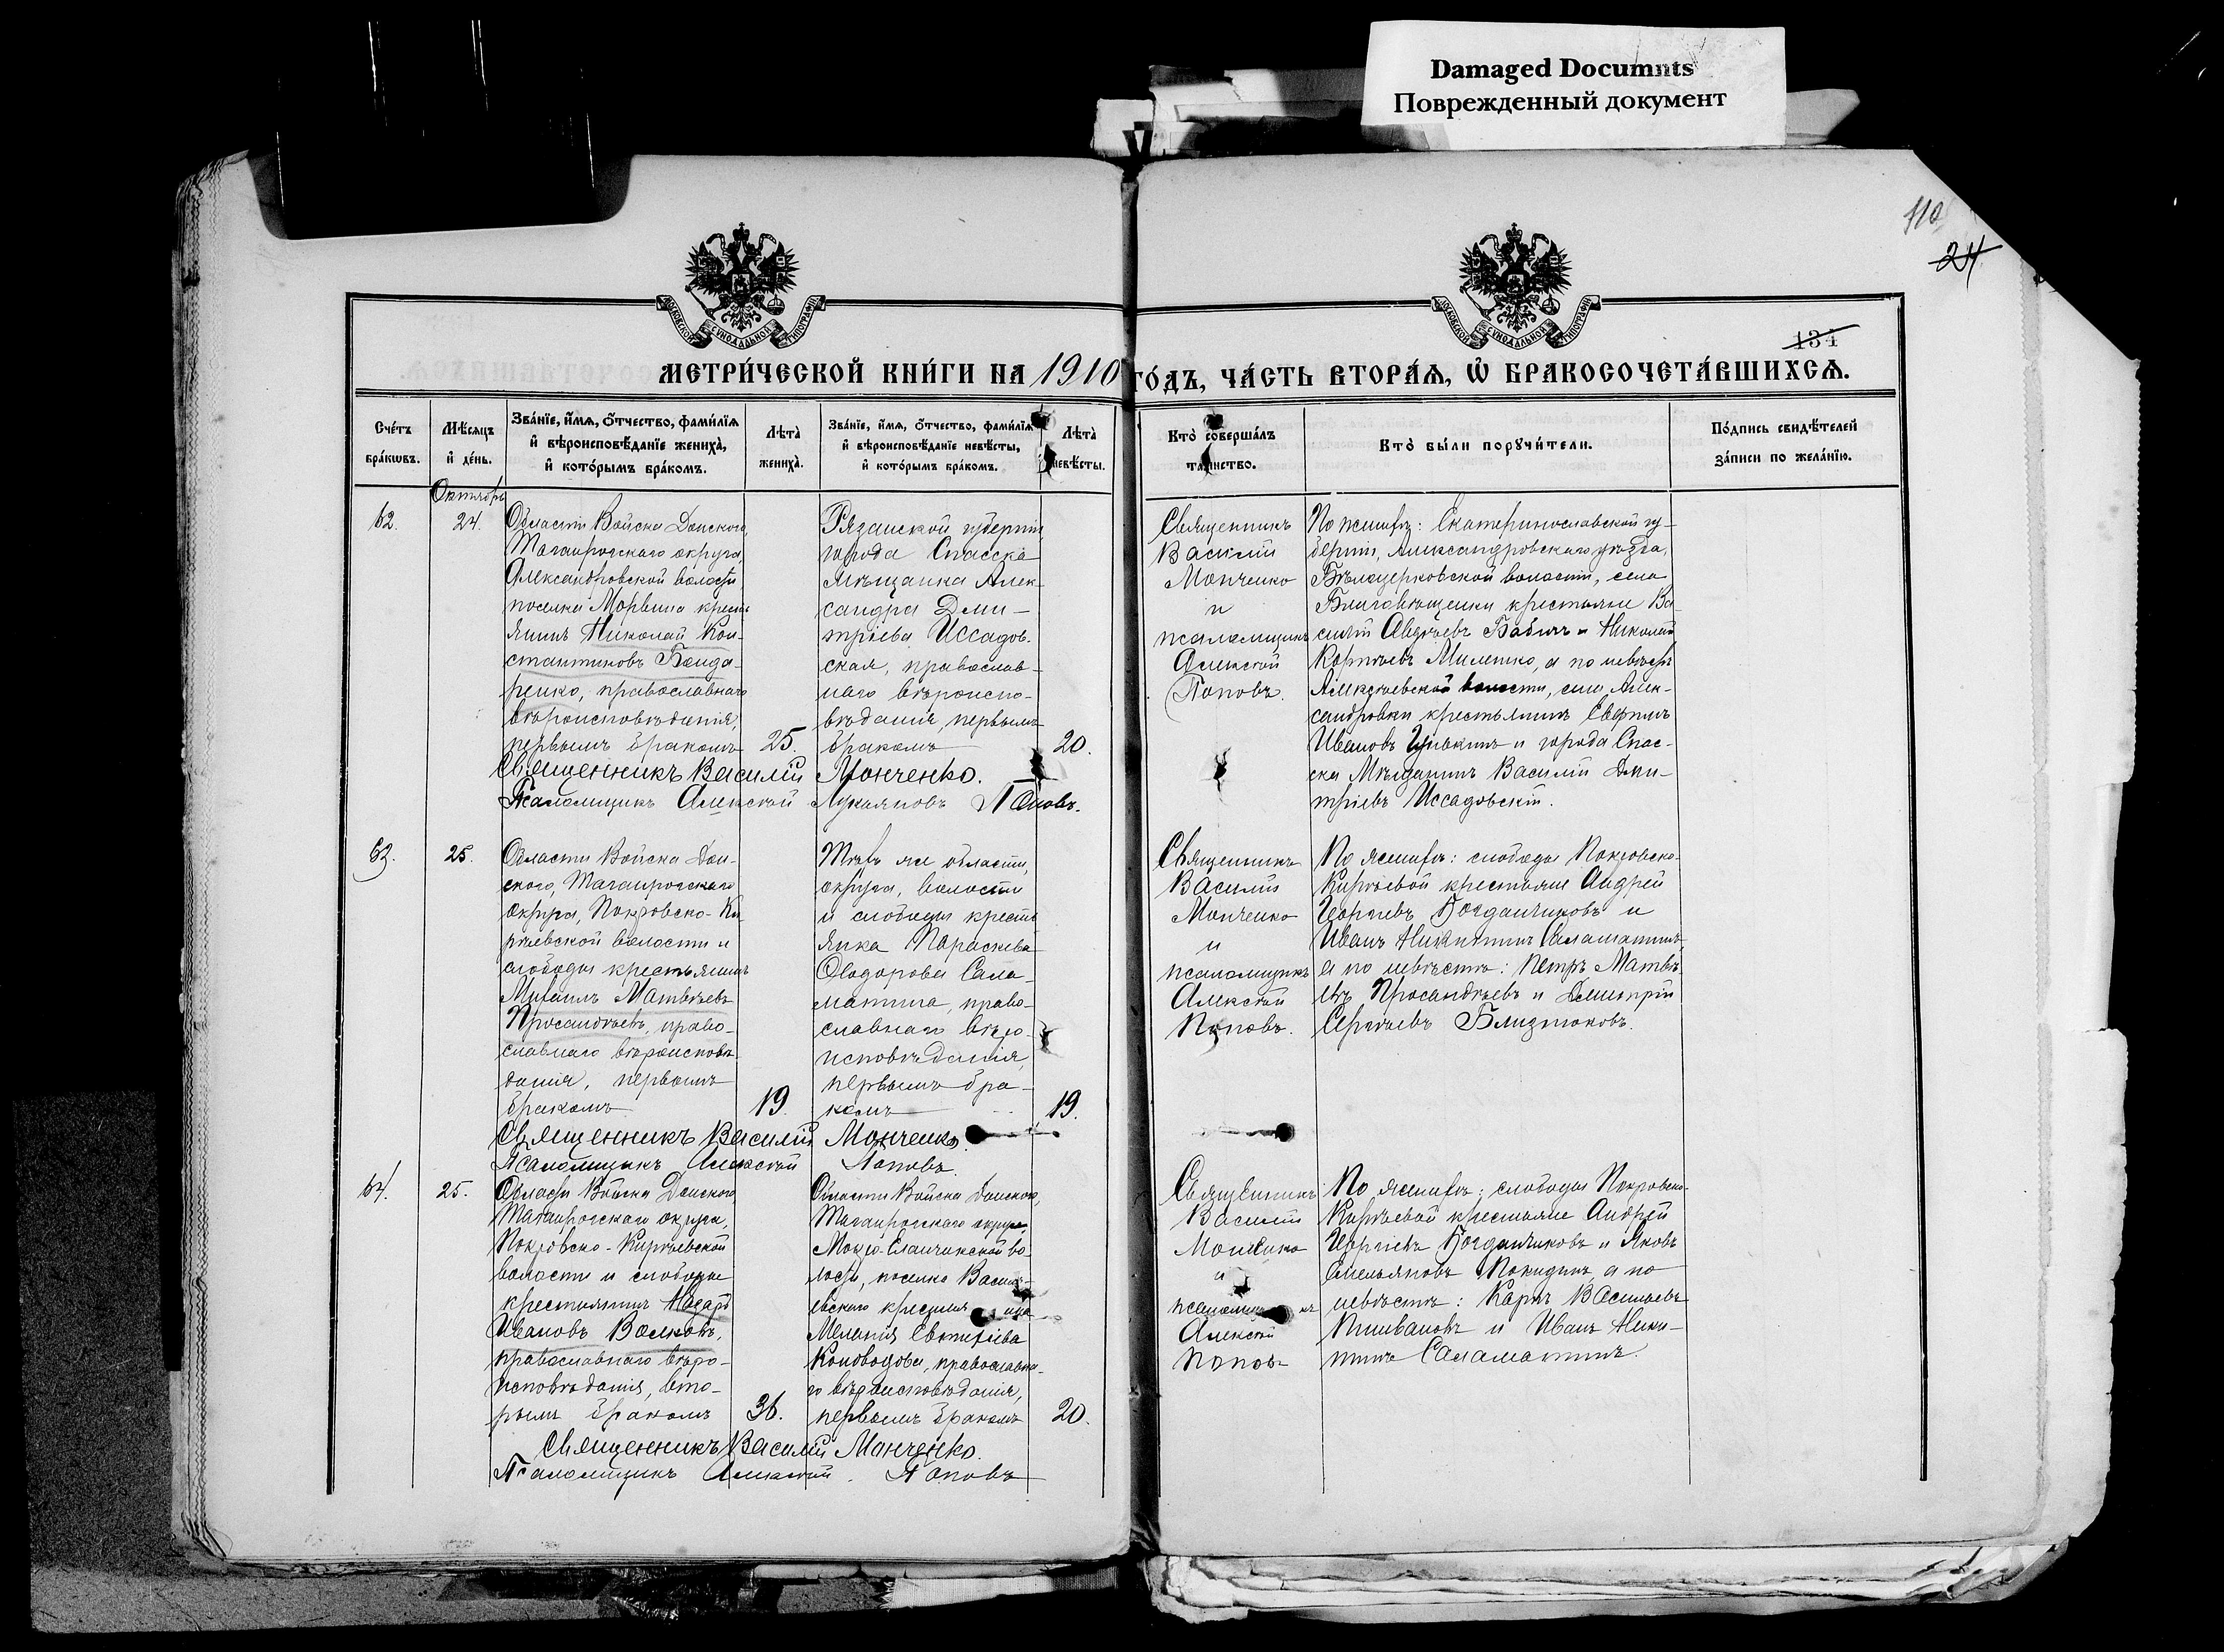 Damaged Documnts
Поврежденный документ
110
24
134
МОСКОВСКОЙ СУНОДАЛЬНОЙ ТИПОГРАФІИ
МОСКОВСКОЙ СУНОДАЛЬНОЙ ТИПОГРАФІИ
МЕТРИ́ЧЕСКОЙ КНИ́ГИ НА 1910 ГО́ДЪ, ЧА́СТЬ ВТОРА́Ѧ, Ѡ҆ БРАКОСОЧЕТА́ВШИХСѦ.
Сче́тъ
бра́кѡвъ.
Мѣ́сѧцъ
и҆ де́нь.
Зва́нїе, и҆́мѧ, ѻ҆́тчество, фами́лїѧ
и҆ вѣроисповѣ́данїе жениха̀,
и҆ кото́рымъ бра́комъ.
Лѣта̀
жениха̀.
Зва́нїе, и҆́мѧ, ѻ҆́тчество, фами́лїѧ
и҆ вѣроисповѣ́данїе невѣ́сты,
и҆ кото́рымъ бра́комъ.
Лѣта̀
невѣ́сты.
Кто̀ соверша́лъ
та́инство.
Кто̀ бы́ли порꙋчи́тели.
По́дпись свидѣ́телей
за́писи по жела́нїю.
Октябрь
62.
24.
Области Войска Донского,
Таганрогскаго округа,
Александровской волости,
поселка Морвина кресть
янинъ Николай Кон-
стантиновъ Бонда-
ренко, православнаго
вѣроисповѣданія,
первымъ бракомъ
25.
Рязанской губерніи
города Спасска
мѣщанка Алек-
сандра Дми-
тріева Иссадов-
ская, православ-
наго вѣроиспо-
вѣданія, первымъ
бракомъ
20.
Священникъ
Василій
Монченко
и
псаломщикъ
Алексѣй
Поповъ.
По женихѣ: Екатеринославской гу-
берніи, Александровскаго уѣзда,
Бѣлоцерковской волости, села
Благовѣщенки крестьяне Ва-
силій Авдѣевъ Бабичъ и Николай
Корнѣевъ Милешко, а по невѣстѣ
Алексѣевской волости, села Алек-
сандровки крестьянинъ Евфимъ
Ивановъ и города Спас-
ска мѣщанинъ Василій Дми-
тріевъ Иссадовскій.
Священникъ Василій Монченко.
Псаломщикъ Алексѣй Лукьяновъ Поповъ.
63.
25.
Области Войска Дон-
ского, Таганрогскаго
округа, Покровско-Ки-
рѣевской волости и
слободы крестьянинъ
Михаилъ Матвѣевъ
Просандѣевъ, право-
славнаго вѣроисповѣ-
данія, первымъ
бракомъ
19.
Тѣхъ же области,
округа, волости
и слободы кресть
янка Параскева
Ѳеодорова Сала-
матина, право-
славнаго вѣро-
исповѣданія,
первымъ бра-
комъ
19.
Священникъ
Василій
Монченко
и
псаломщикъ
Алексѣй
Поповъ.
По женихѣ: слободы Покровско-
Кирѣевой крестьяне Андрей
Георгіевъ Богданчиковъ и
Иванъ Никитинъ Саламатинъ,
а по невѣстѣ: Петръ Матвѣ-
евъ Просандѣевъ и Димитрій
Сергѣевъ Близнюковъ.
Священникъ Василій Монченко
Псаломщикъ Алексѣй Поповъ.
64.
25.
Области Войска Донского
Таганрогскаго округа,
Покровско-Кирѣевской
волости и слободы
крестьянинъ Назарій
Ивановъ Волковъ,
православнаго вѣро-
исповѣданія, вто-
рымъ бракомъ
36.
Области Войска Донского,
Таганрогскаго округа,
Мокро-Еланчикской во-
лости, поселка Василь-
евскаго
Меланія Евтихіева
Коноводова, православна-
го вѣроисповѣданія,
первымъ бракомъ
20.
Священникъ
Василій
Монченко
и
псаломщикъ
Алексѣй
Поповъ
По женихѣ: слободы Покровско-
Кирѣевой крестьяне Андрей
Георгіевъ Богданчиковъ и Яковъ
Емельяновъ Покидинъ, а по
невѣстѣ: Карпъ Васильевъ
Пшивановъ и Иванъ Ники-
тинъ Саламатинъ.
Священникъ Василій Монченко.
Псаломщикъ Алексѣй Поповъ